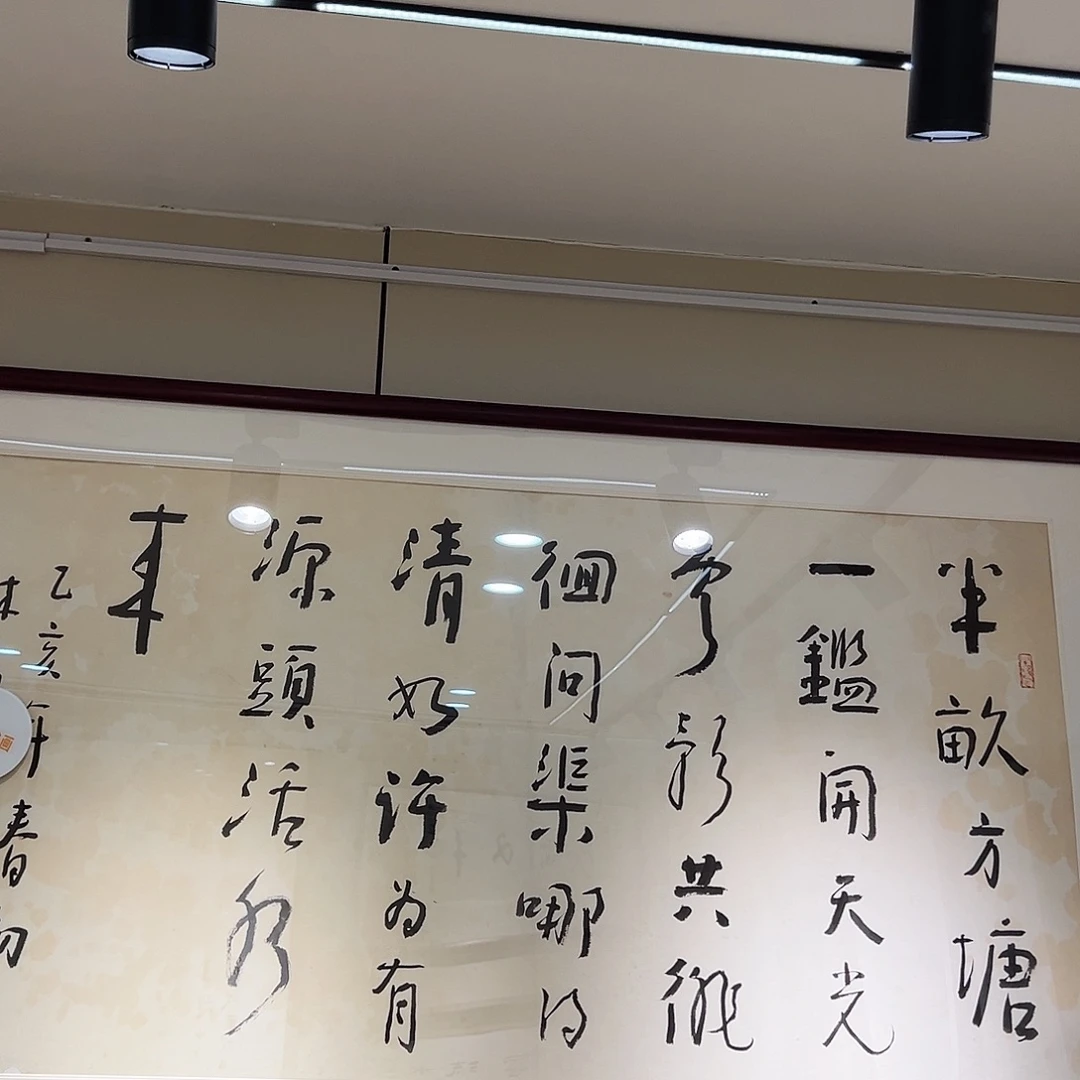 半畝方塘
一鑑開天光
雲影共徘
徊問渠哪得
清如許為有
源頭活水
来
乙亥年春初
画